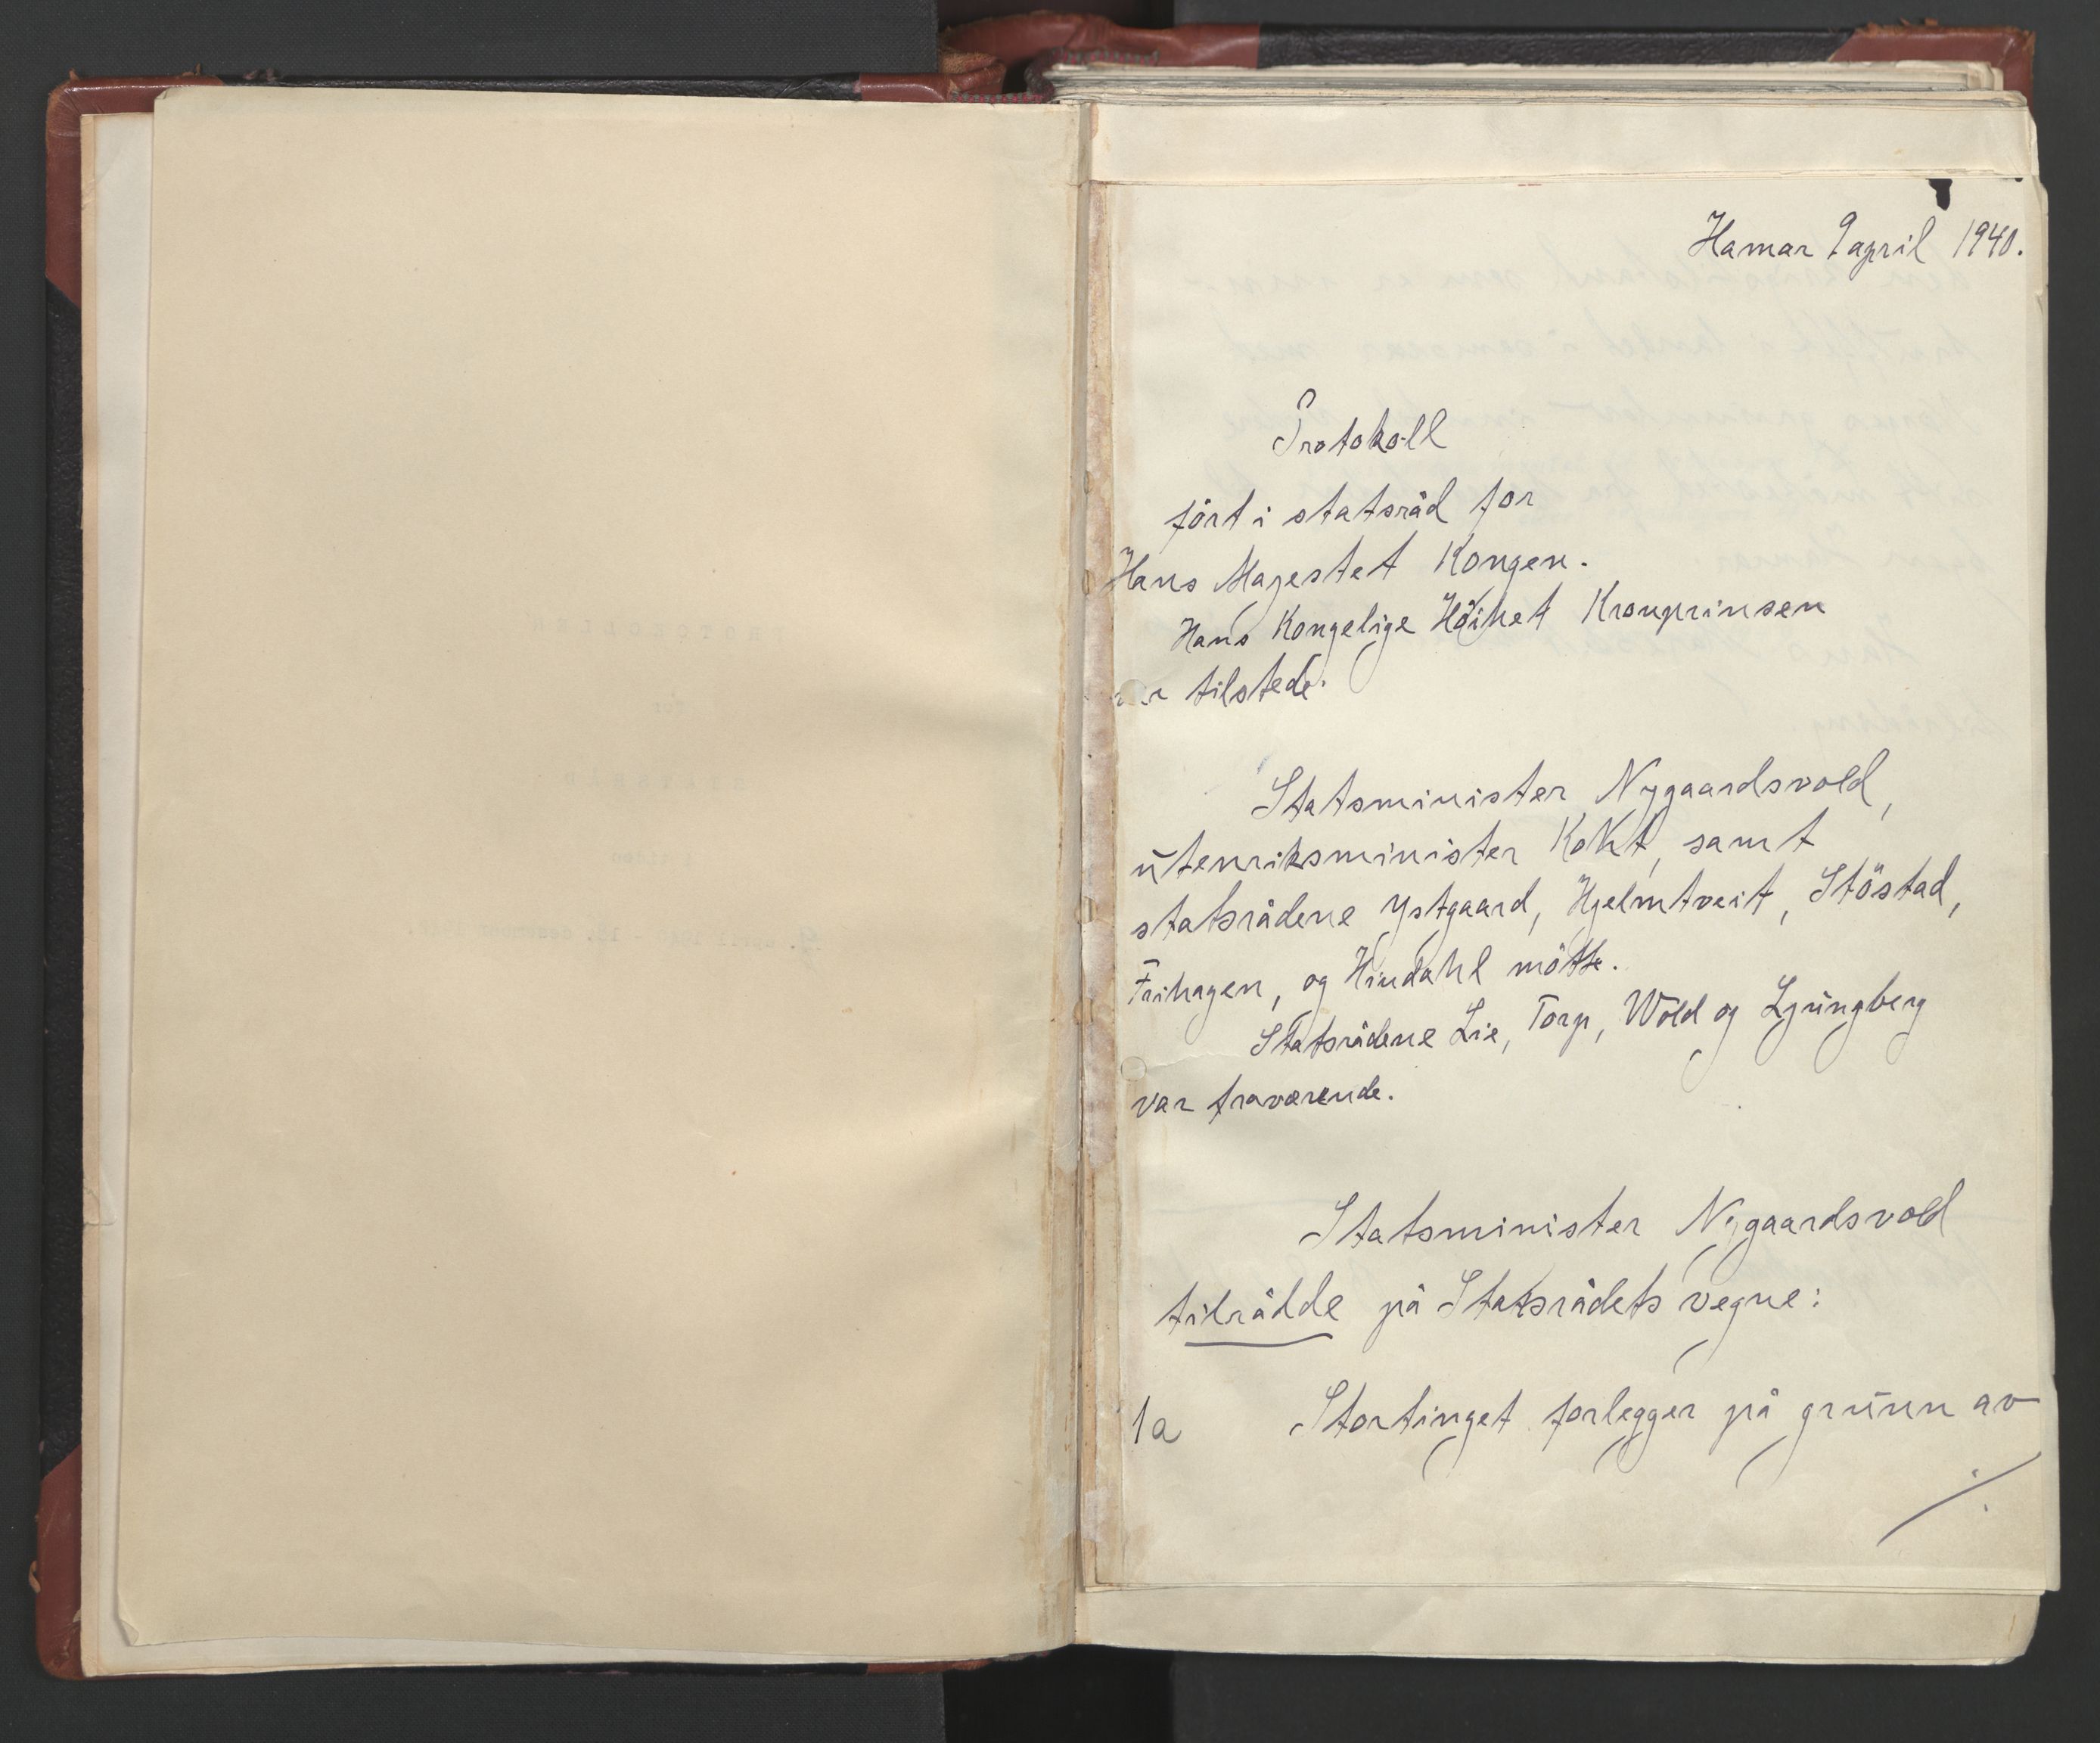 Hamar 9 april 1940.
Protokoll
ført i statsråd for
Hans Majestet Kongen.
Hans Kongelige Höihet Kronprinsen
tilstede.
Statsminister Nygaardsvold,
utenriksminister Koht, samt
statsrådene Ystgaard, Hjelmtveit, Stöstad,
Frihagen, og Hindahl mötte.
Statsrådene Lie, Torp, Wold og Ljungberg
var fraværende.
Statsminister Nygaardsvold
tilrådde på Statsrådets vegne:
1a Stortinget forlegger på grunn av
./.